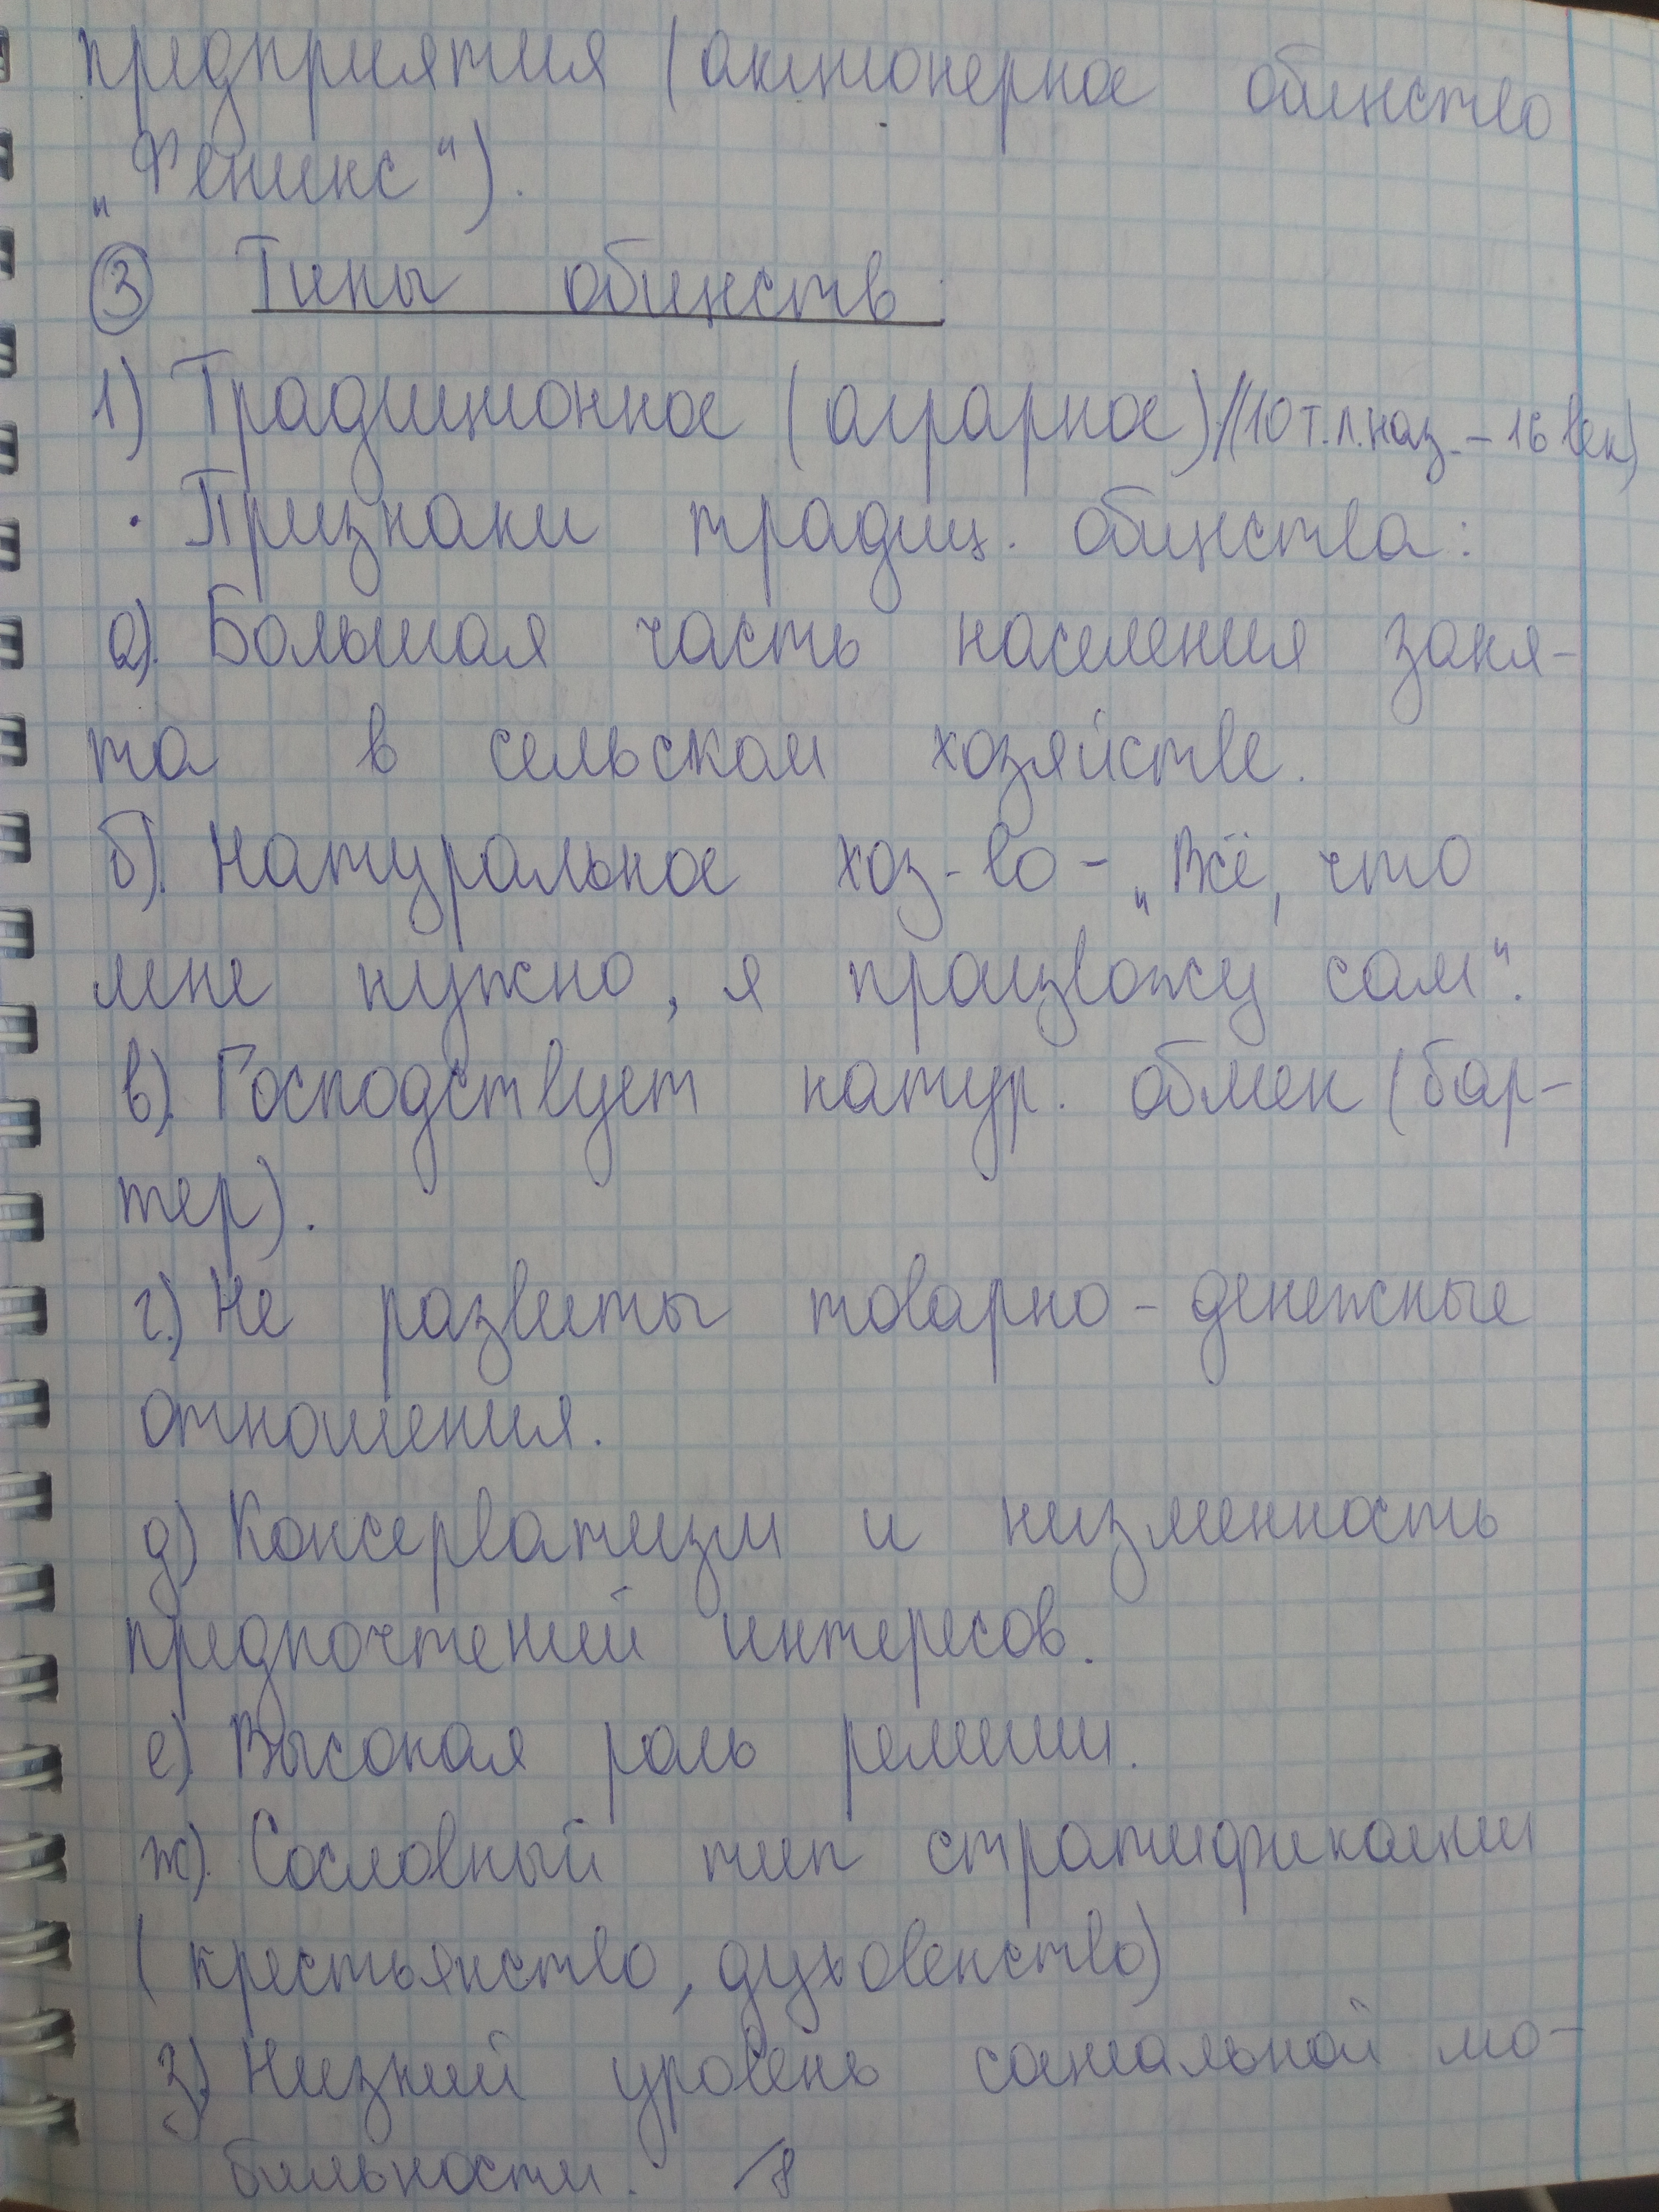 предприятия (акционерное общество
„Феникс").
③ Типы обществ.
1) Традиционное (аграрное) // (10 т.л.наз. – 16 век)
· Признаки традиц. общества:
а). Большая часть населения заня-
та в сельском хозяйстве.
б). Натуральное хоз-во – „Всё, что
мне нужно, я произвожу сам".
в). Господствует натур. обмен (бар-
тер).
г.) Не развиты товарно-денежные
отношения.
д) Консерватизм и низменность
предпочтений интересов.
е) Высокая роль религии.
ж). Сословный тип стратификации
(крестьянство, духовенство)
з) Низкий уровень социальной мо-
бильности.